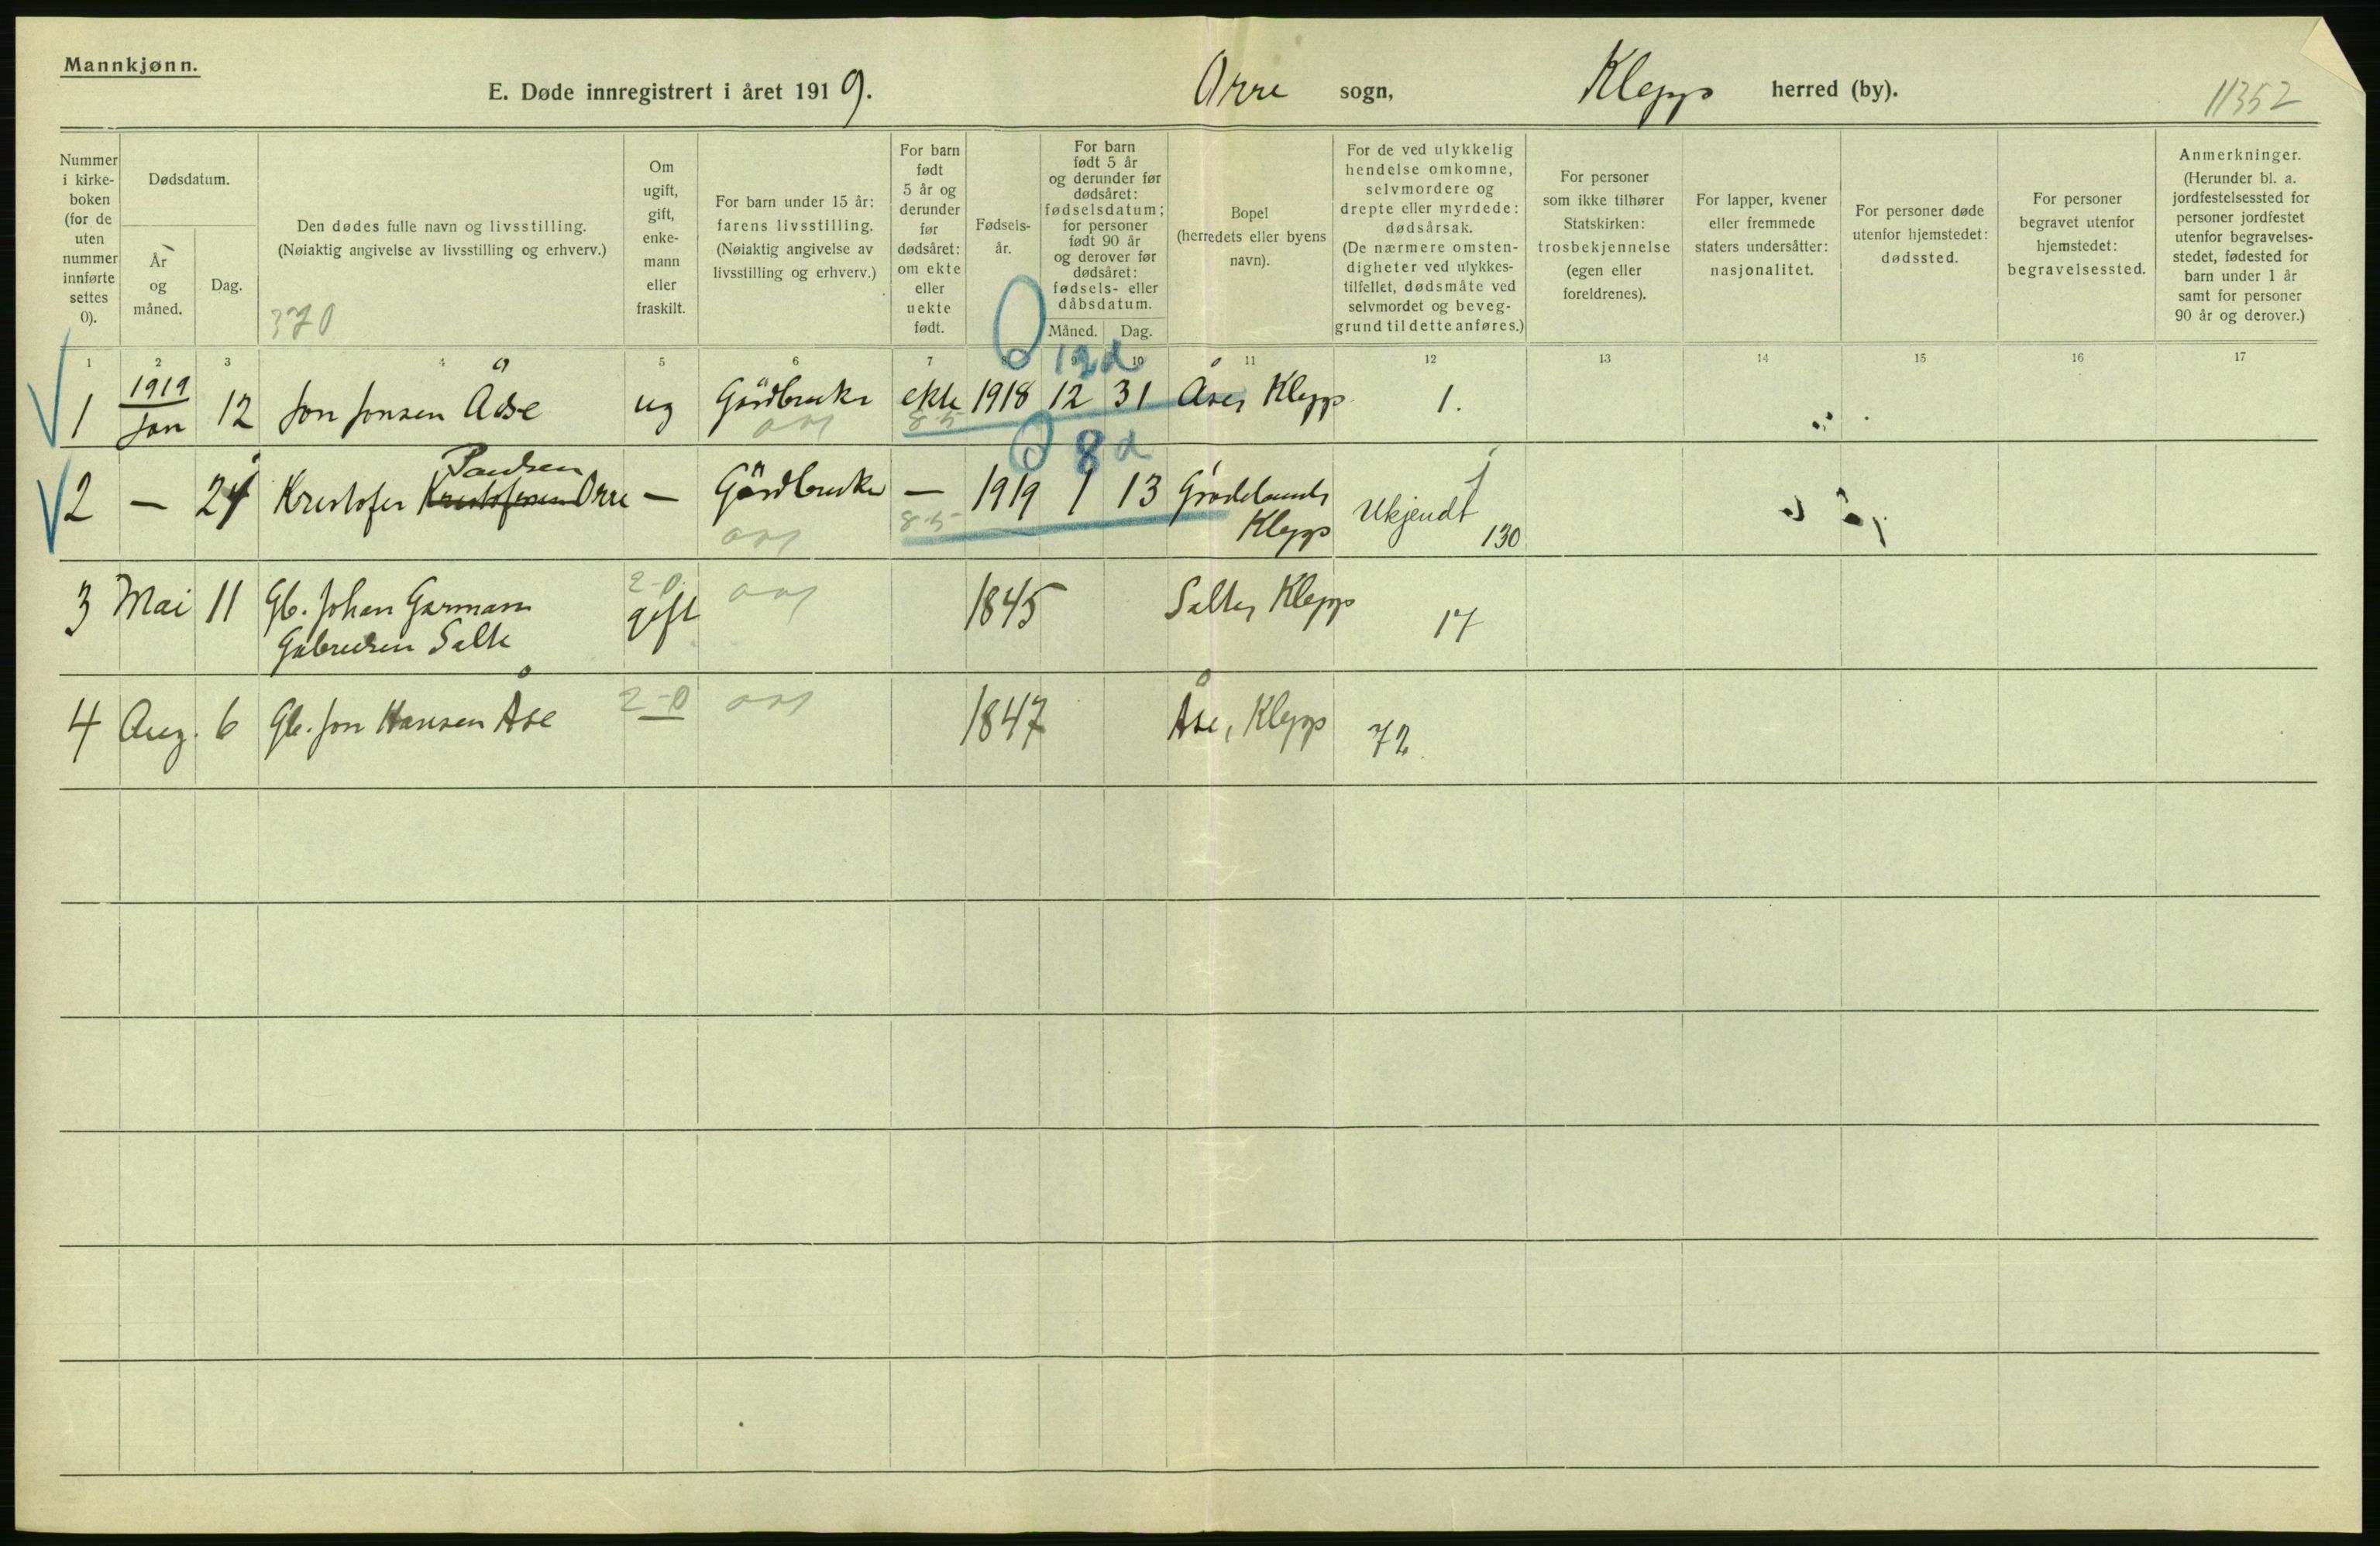 Mannkjønn.
E. Døde innregistrert i året 1919. Orre sogn, Klepp herred (by).
11352
Nummer i kirke-boken (for de uten nummer innførte settes 0).
Dødsdatum.
År og måned.
Dag.
Den dødes fulle navn og livsstilling.
(Nøiaktig angivelse av livsstilling og erhverv.)
370
Om ugift, gift, enke-mann eller fraskilt.
For barn under 15 år: farens livsstilling. (Nøiaktig angivelse av livsstilling og erhverv.)
For barn født 5 år og derunder før dødsåret: om ekte eller uekte født.
Fødsels-år.
For barn født 5 år og derunder før dødsåret: fødselsdatum; for personer født 90 år og derover før dødsåret: fødsels- eller dåbsdatum.
Måned. Dag.
Bopel (herredets eller byens navn).
For de ved ulykkelig hendelse omkomne, selvmordere og drepte eller myrdede: dødsårsak. (De nærmere omsten-digheter ved ulykkes-tilfellet, dødsmåte ved selvmordet og beveg-grund til dette anføres.)
For personer som ikke tilhører Statskirken: trosbekjennelse (egen eller foreldrenes).
For lapper, kvener eller fremmede staters undersåtter: nasjonalitet.
For personer døde utenfor hjemstedet: dødssted.
For personer begravet utenfor hjemstedet: begravelsessted.
Anmerkninger. (Herunder bl. a. jordfestelsessted for personer jordfestet utenfor begravelses-stedet, fødested for barn under 1 år samt for personer 90 år og derover.)
1 2 3 4 5 6 7 8 9 10 11 12 13 14 15 16 17
12 d
1 1919 Jan 12 Jon Jonsen Åse ug Gårdbruker ekte 1918 12 31 Åse, Klepp 1.
8-5
8 d
Paulsen
2 — 21 Kristofer Kristofersen Orre — Gårdbruker — 1919 1 13 Grødelands Klepp Ukjendt 130
8-5
2-0
3 Mai 11 Gb. Johan Garmann Gabrielsen Salte gift 1845 Salte, Klepp 17
2-0
4 Aug. 6 Gb. Jon Hansen Åse 1847 Åse, Klepp 72